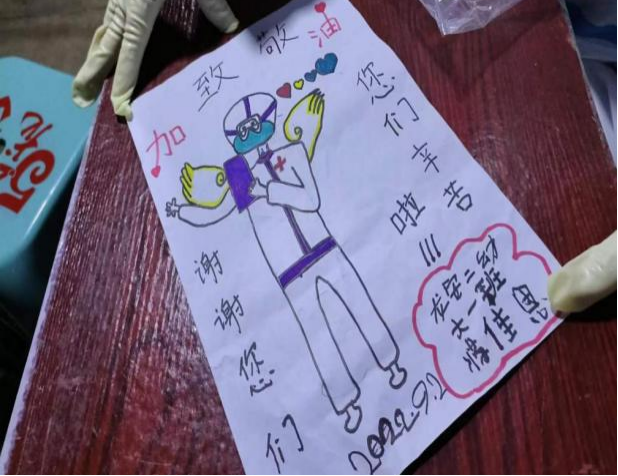 致敬
加油
您们辛苦
啦!!!
谢谢您们
龙安二幼
大一班
佳恩
2022.9.2